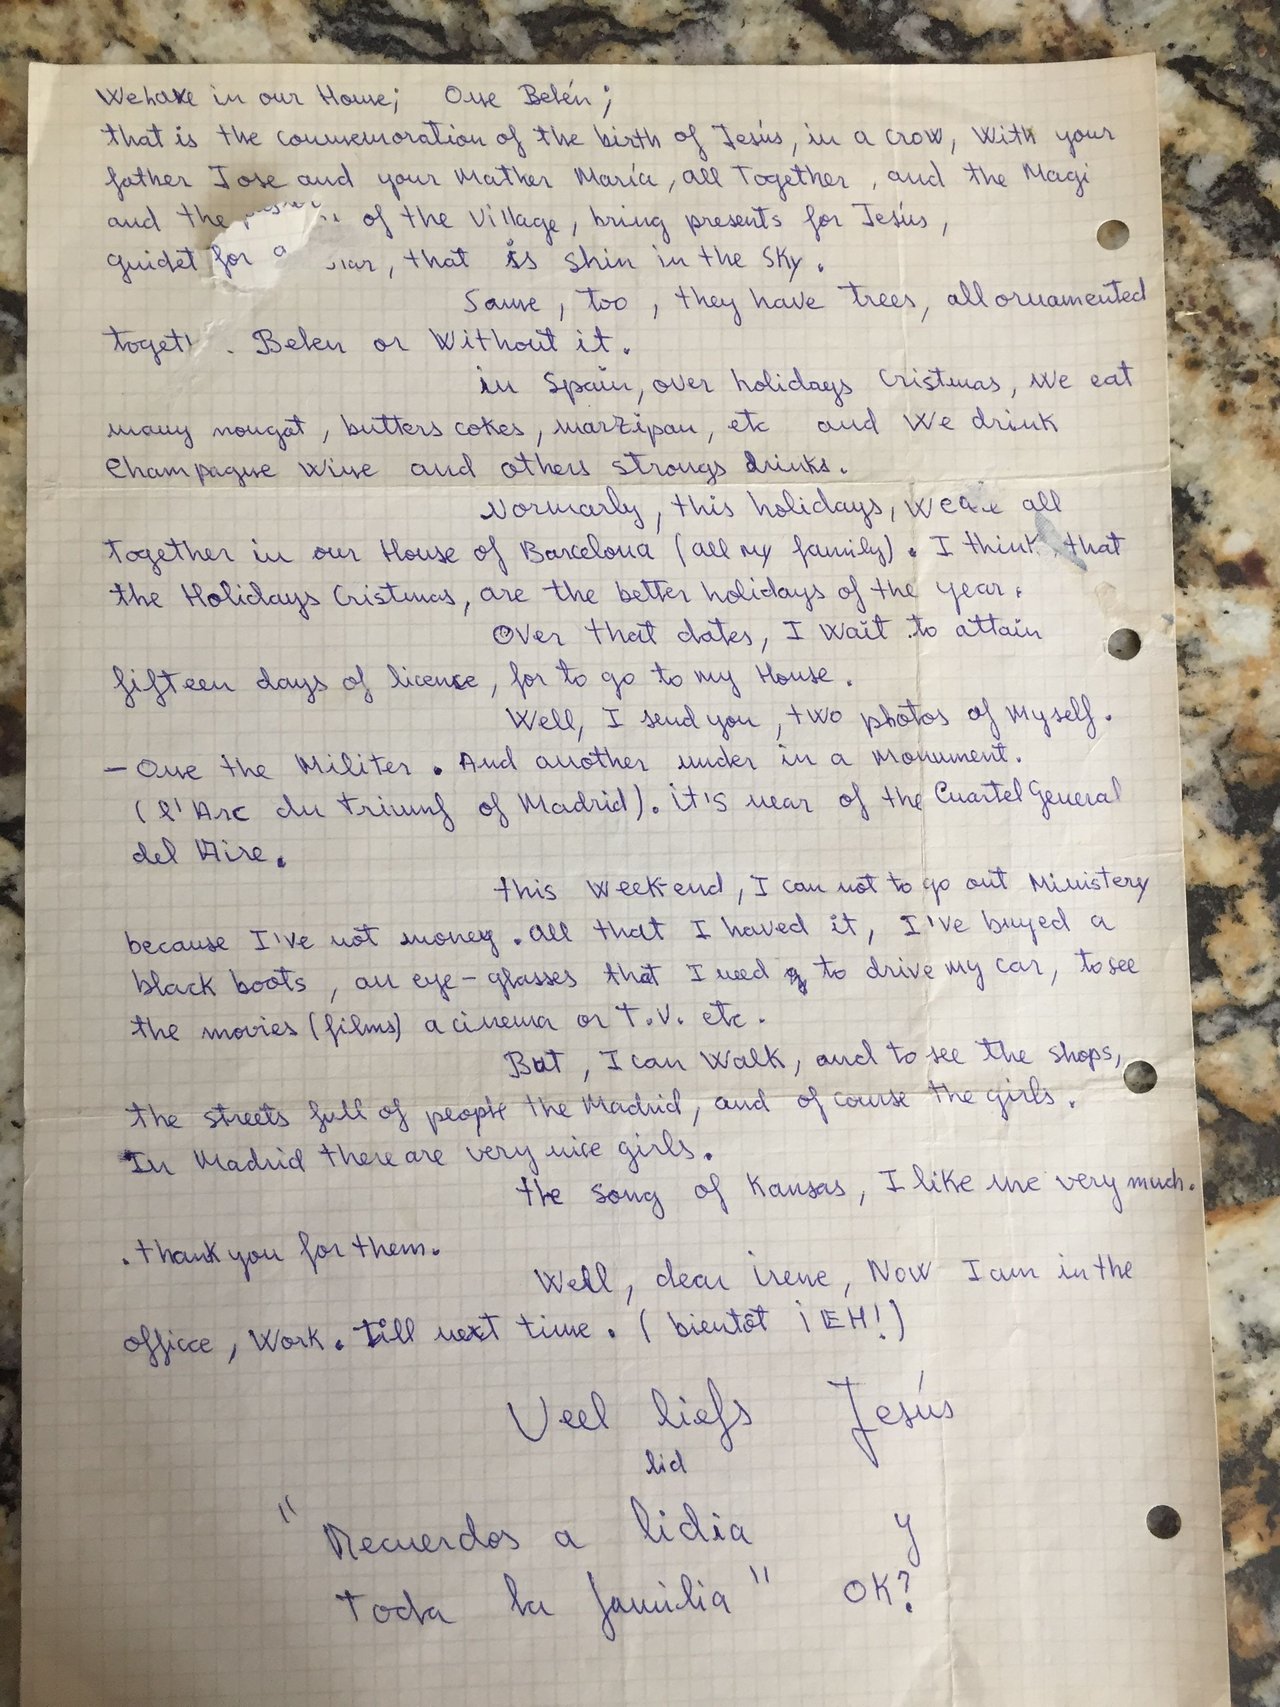 We have in our Home; One Belén;
that is the commemoration of the birth of Jesús, in a crow, With your
father Jose and your Mather María, all Together, and the Magi
and the of the Village, bring presents for Jesús,
guidet for a that is shin in the Sky.
Same, too, they have trees, all ornamented
Belen or Without it.
in Spain, over holidays Cristmas, we eat
many nougat, butters cokes, marzipan, etc and We drink
Champagne Wine and others strongs drinks.
Normarly, this holidays, We are all
together in our House of Barcelona (all my family). I think, that
the Holidays Cristmas, are the better holidays of the year.
Over that dates, I wait to attain
fifteen days of licence, for to go to my House.
Well, I send you, two photos of Myself.
- One the Militer. And another under in a Monument.
(l'Arc du triumf of Madrid). it's near of the Cuartel General
del Aire.
this Week-end, I can not to go out Ministery
because I've not money. all that I haved it, I've buyed a
black boots, an eye-glasses that I need to drive my car, to see
the movies (films) a cinema or T.V. etc.
But, I can Walk, and to see the shops,
the streets full of people the Madrid, and of course the girls.
In Madrid there are very nice girls.
the song of Kansas, I like me very much.
. thank you for them.
Well, dear irene, Now I am in the
officce, Work. till next time. (bientôt ¡EH!)
Veel liefs Jesús
lid
"Recuerdos a lidia y
toda la familia" OK?